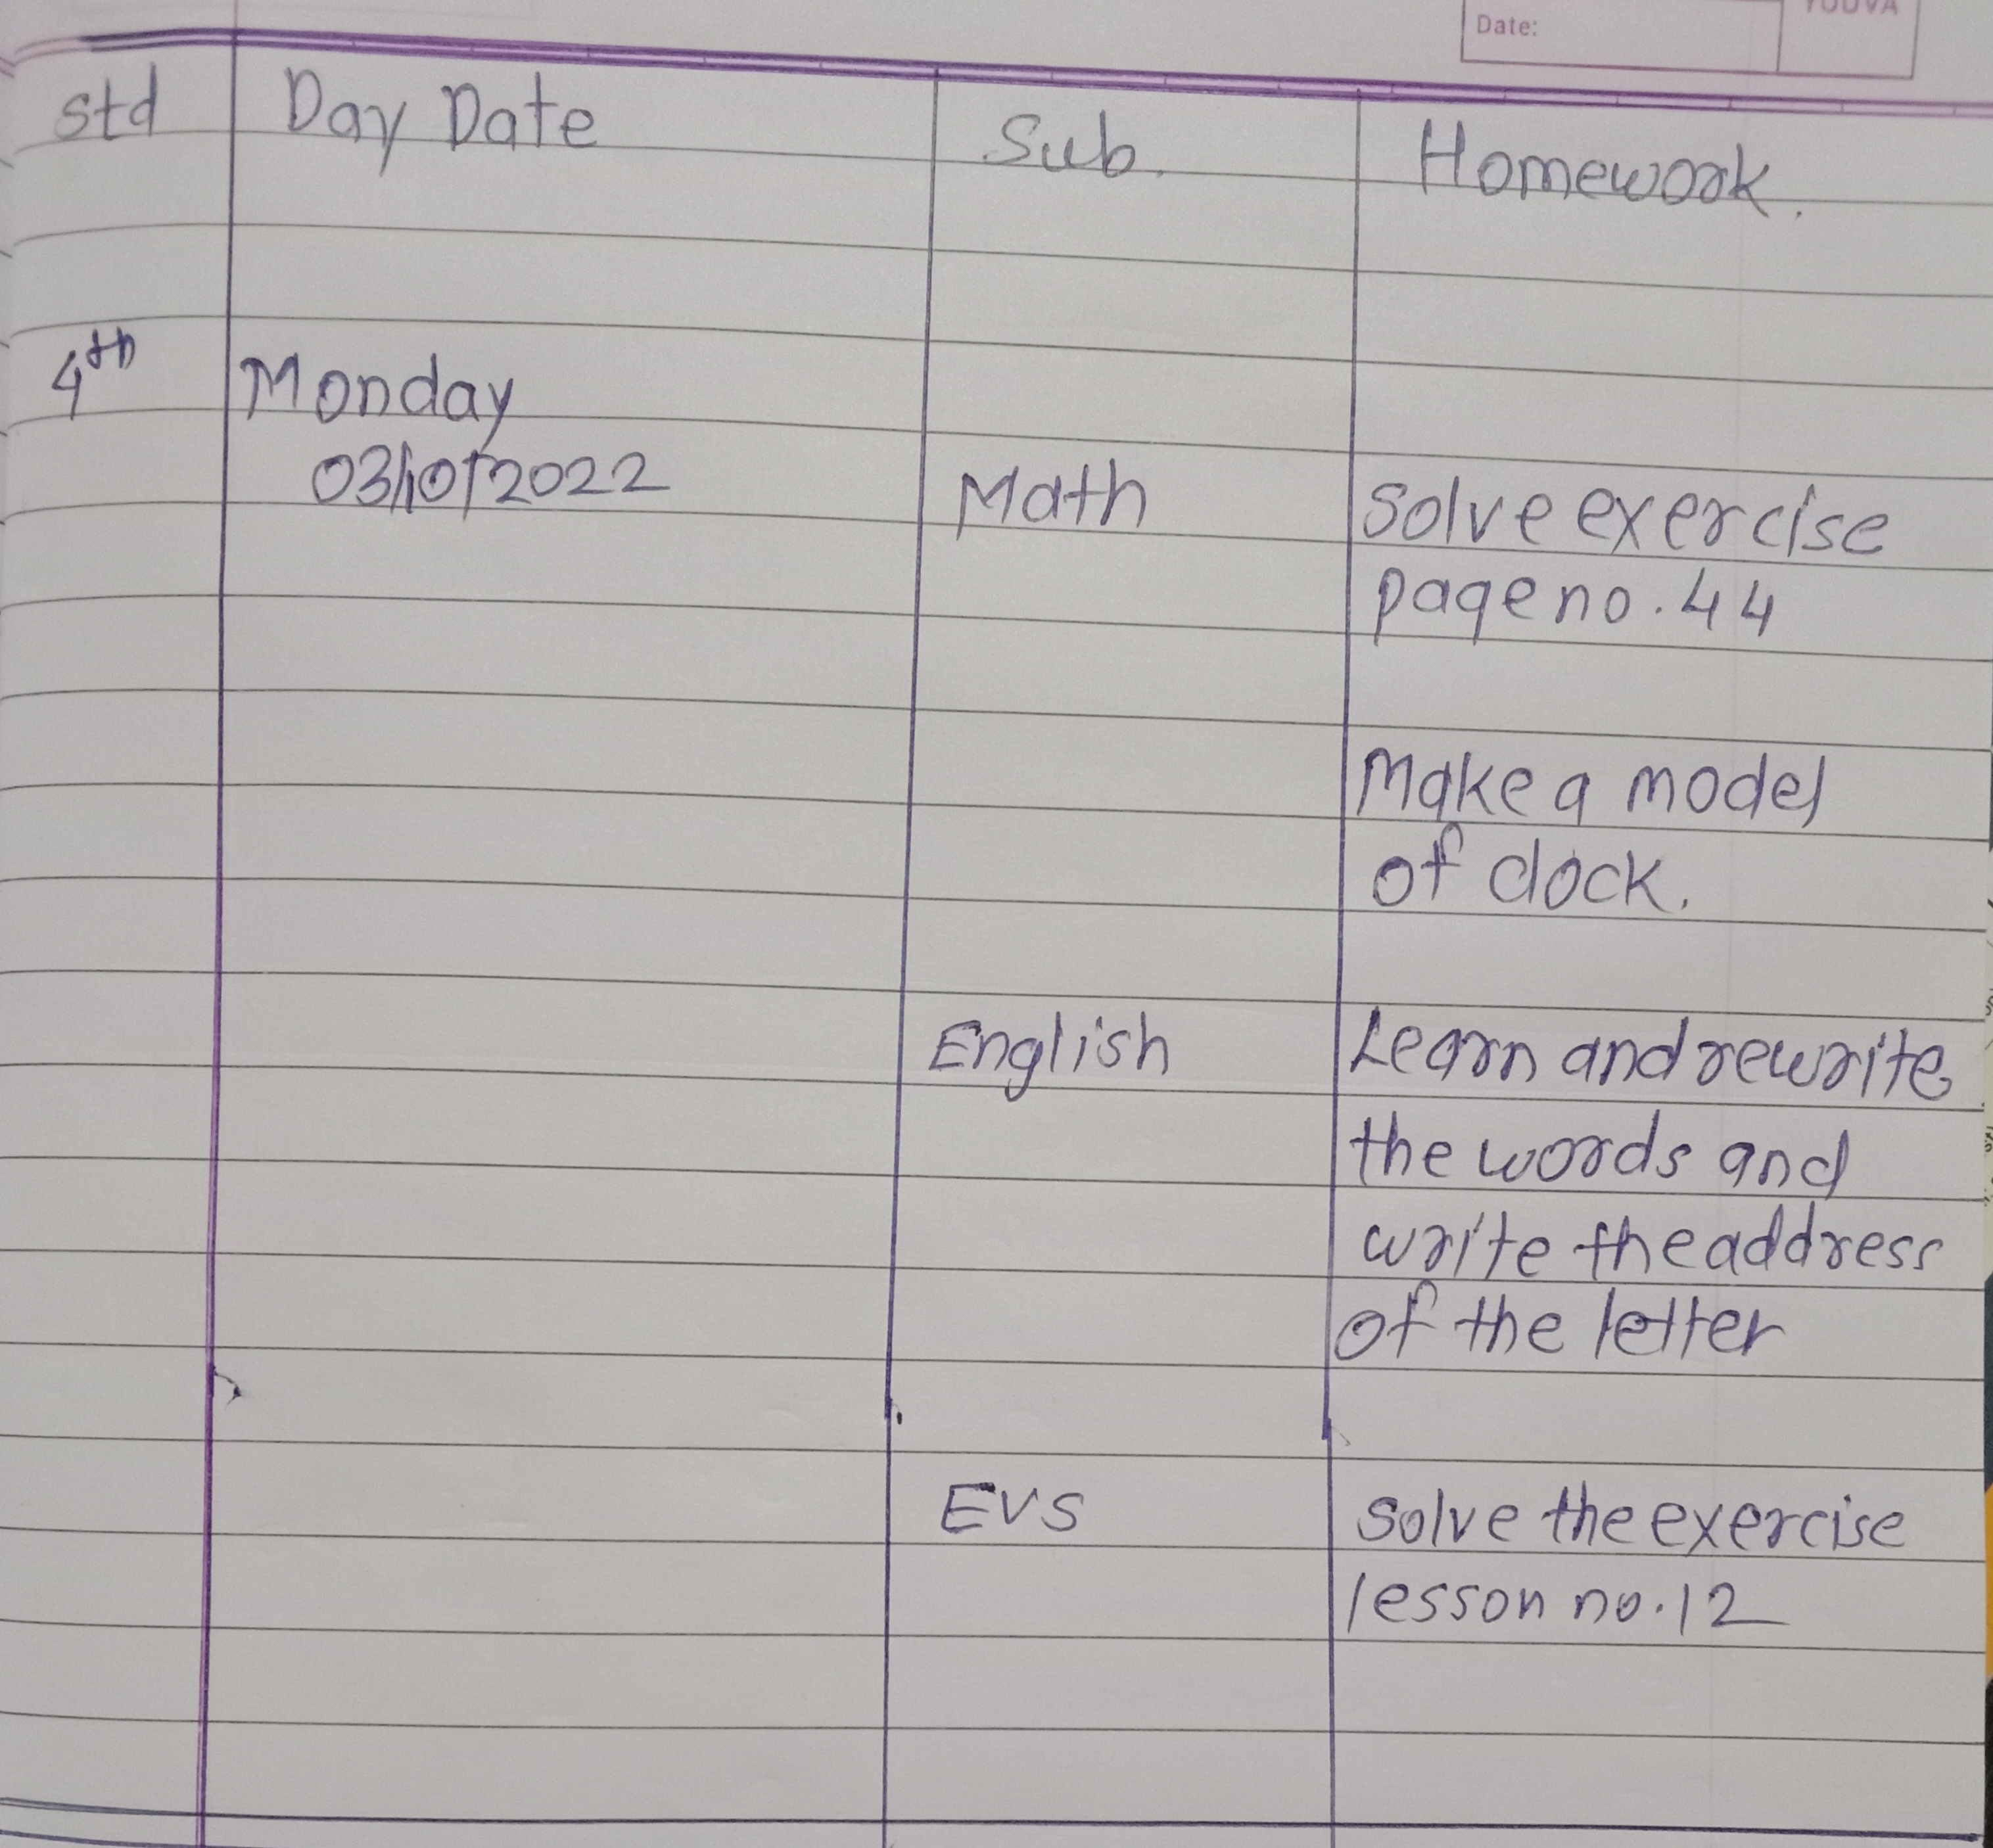 Date:
YOUVA
Std Day Date Sub. Homework.
4th Monday
03/10/2022 Math Solve exercise
page no. 44
Make a model
of clock.
English Learn and rewrite
the words and
write the address
of the letter
EVS Solve the exercise
lesson no. 12